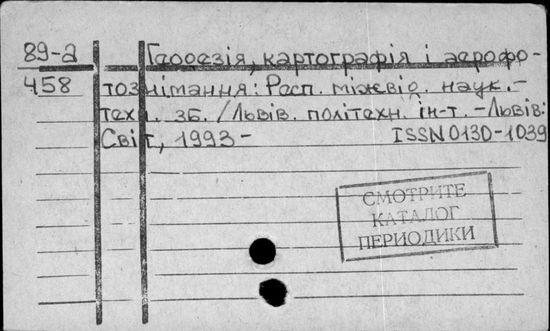 89-а Геодезія, картографія і аерофо-
458 тознімання: Респ. міжвід. наук.-
техн. зб. / Львів. політехн. ін-т. - Львів:
Світ, 1993 - ISSN 0130-1039
СМОТРИТЕ
КАТАЛОГ
ПЕРИОДИКИ